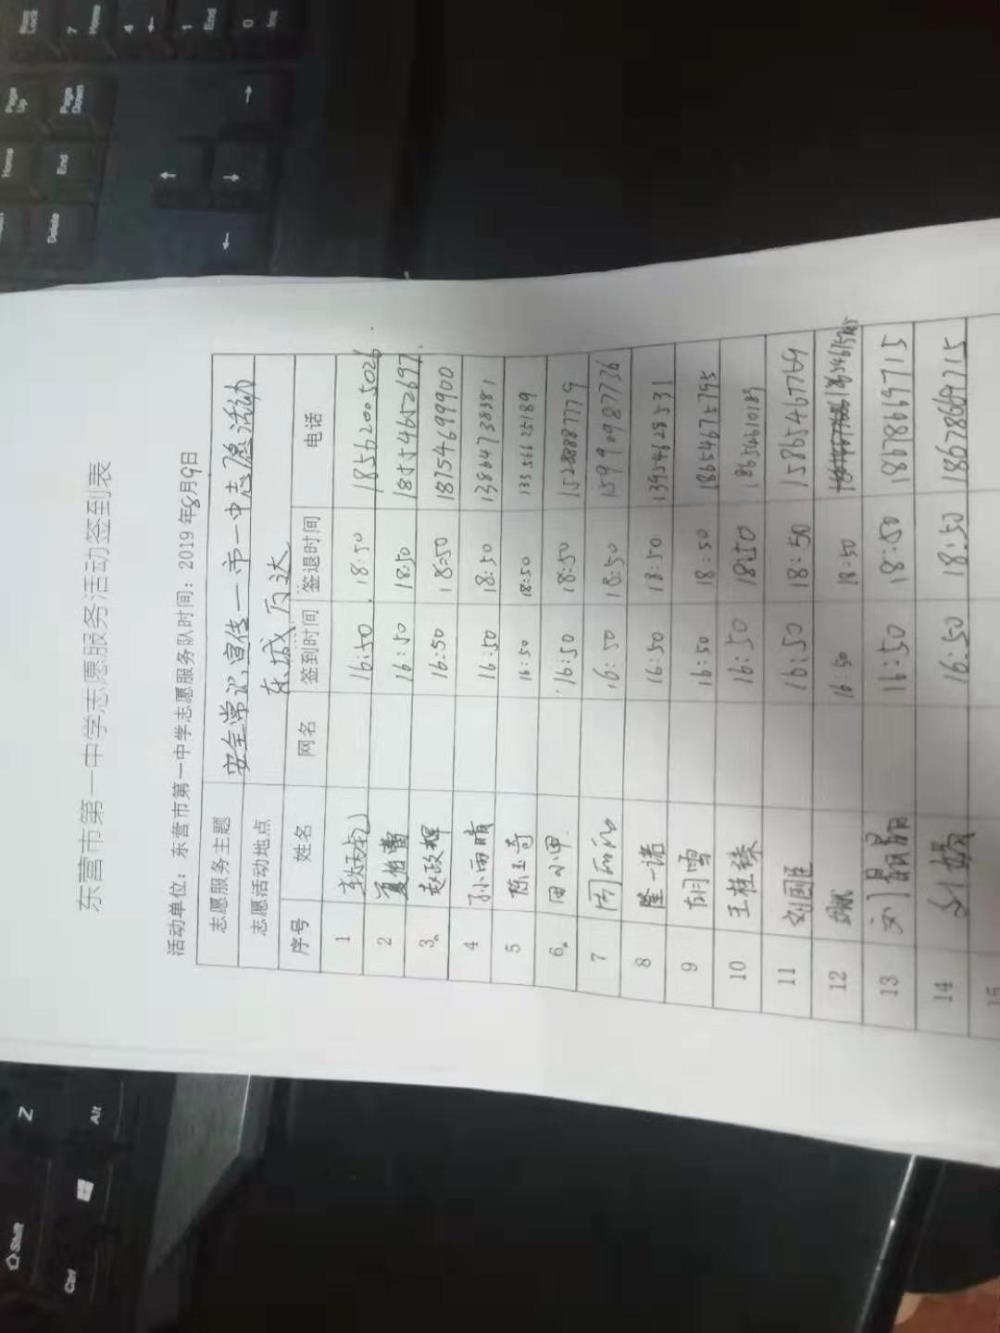 东营市第一中学志愿服务活动签到表
活动单位：东营市第一中学志愿服务队时间：2019年8月9日
志愿服务主题 安全常识宣传—市一中志愿活动
志愿活动地点 东城万达
序号 姓名 网名 签到时间 签退时间 电话
1 16:50 18:50 18562005026
2 夏柏曹 16:50 18:50 18554652697
3 赵政辉 16:50 18:50 18754699900
4 孙雨萌 16:50 18:50 13864738381
5 陈玉寺 16:50 18:50 13356625189
6 田小甲 16:50 18:50 15288887779
7 16:50 18:50 15990987736
8 隆一诺 16:50 18:50 13954628531
9 胡雪 16:50 18:50 18654675795
10 王桂臻 16:50 18:50 18654610189
11 刘国臣 16:50 18:50 15865467769
12 16:50 18:50
13 刘晶晶 16:50 18:50 18678669715
14 16:50 18:50 18678669715
15
Home
Page Up
7 Home
4
1 End
0 Ins
Delete
End
Page Down
Shift
Z
Ctrl
Alt